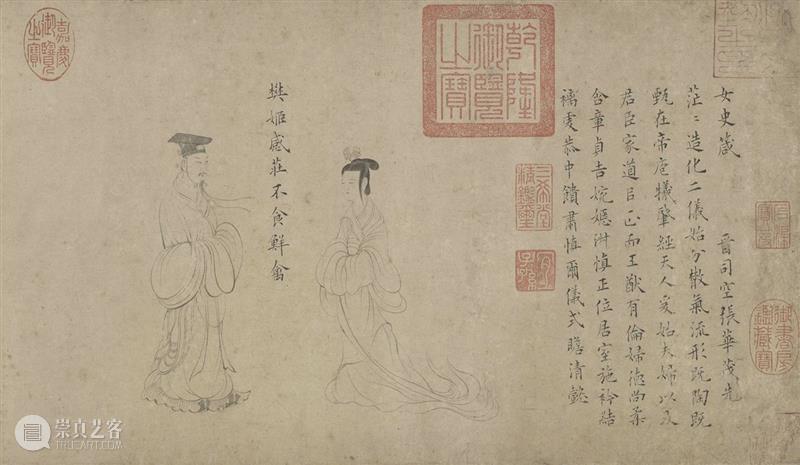 女史箴　晉司空張華茂先
茫〻造化二儀始分散氣流形既陶既
甄在帝庖犧肇經天人爰始夫婦以及
君臣家道以正而王猷有倫婦德尚柔
含章貞吉婉嫕淑慎正位居室施衿結
褵虔恭中饋肅慎爾儀式瞻清懿
石渠寶笈
御書房鑑藏寶
乾隆御覽之寶
三希堂精鑑璽
宜子孫
樊姬感莊不食鮮禽
嘉慶御覽之寶
崇真艺客